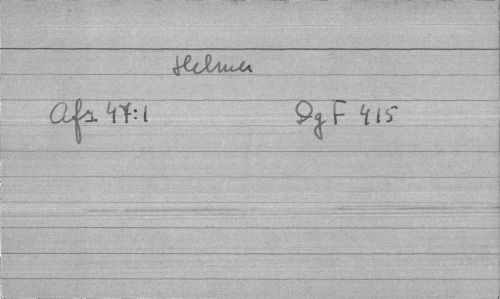 Helmer
Afs 47:1 DgF 415